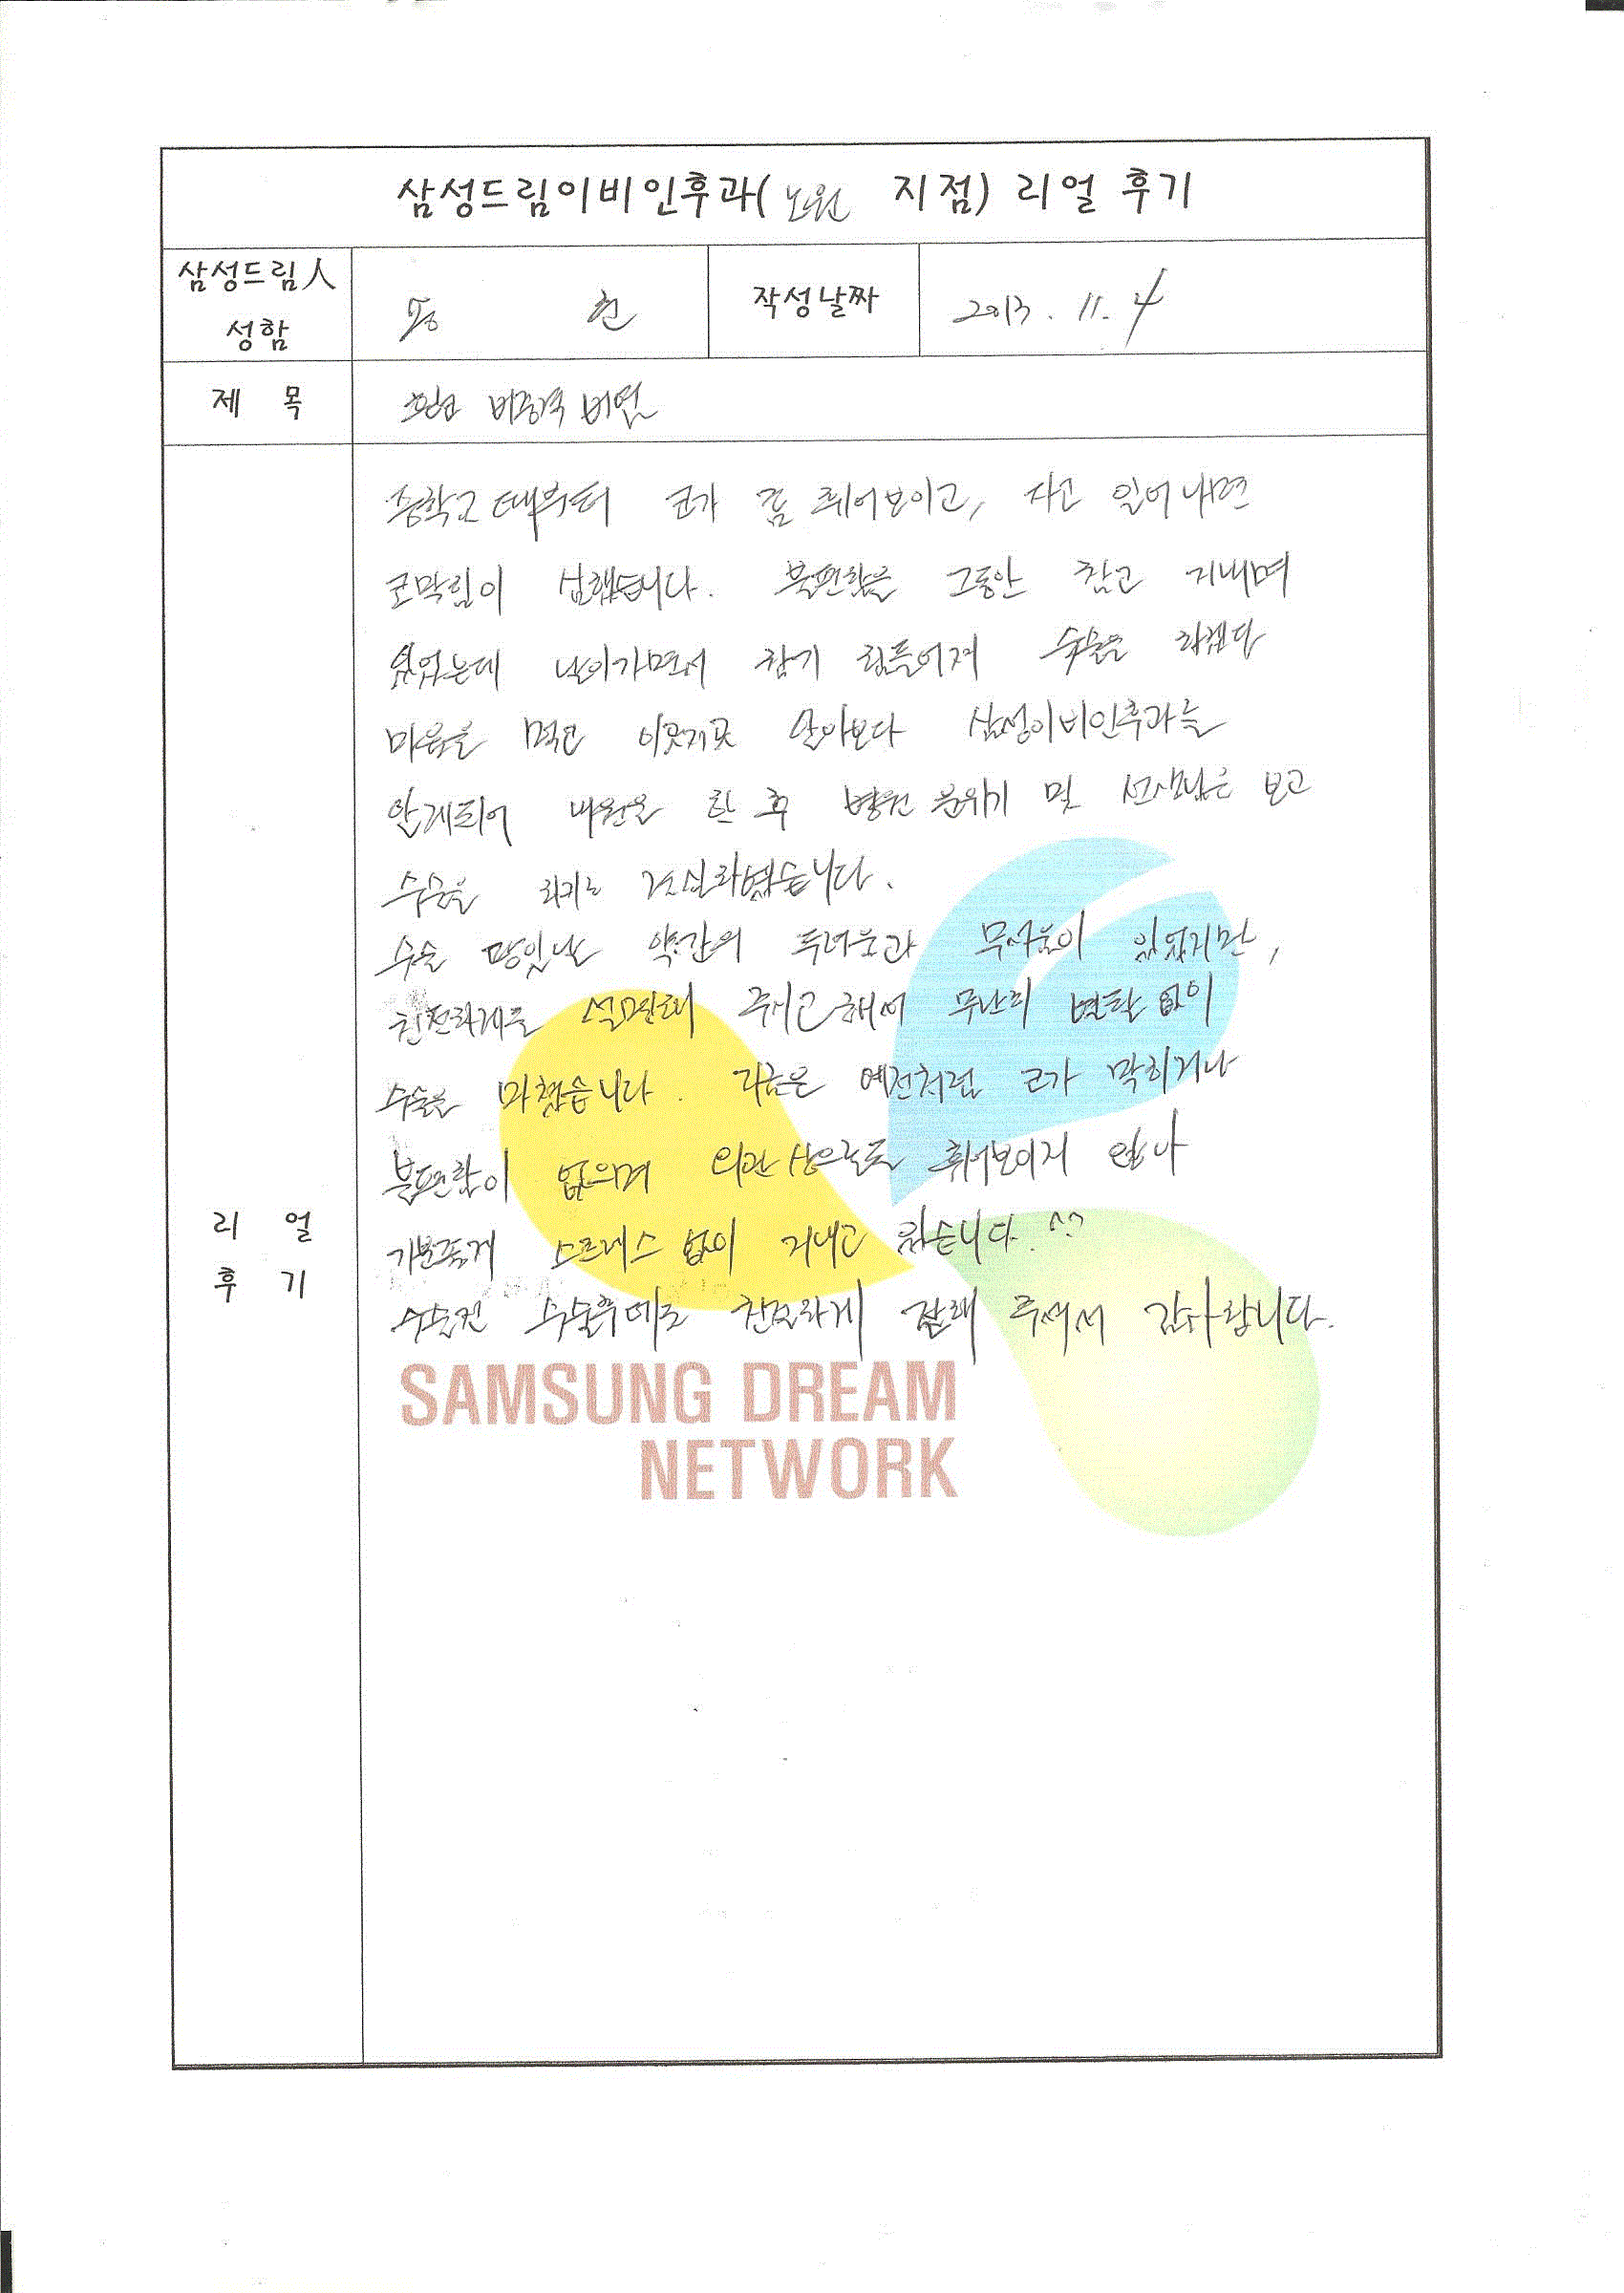 삼성드림이비인후과(노원 지점) 리얼 후기
삼성드림人
성함
현
작성날짜
2013. 11. 4
제 목
비중격 비염
중학교때부터 코가 좀 휘어보이고, 자고 일어나면
코막힘이 심했습니다. 불편함을 그동안 참고 지내며
있었는데 날이가면서 참기 힘들어져 수술을 하겠다
마음을 먹고 이곳저곳 알아보다 삼성이비인후과를
알게되어 내원을 한 후 병원 분위기 및 선생님을 보고
수술을 하기로 결심하였습니다.
수술 당일날 약간의 두려움과 무서움이 있었지만,
친절하게들 설명해 주시고 해서 무난히 별탈 없이
수술을 마쳤습니다. 지금은 예전처럼 코가 막히거나
불편함이 없으며 외관상으로도 휘어보이지 않아
기분좋게 스트레스 없이 지내고 있습니다. ^^
수술전 수술후에도 친절하게 잘해 주셔서 감사합니다.
리 얼
후 기
SAMSUNG DREAM
NETWORK